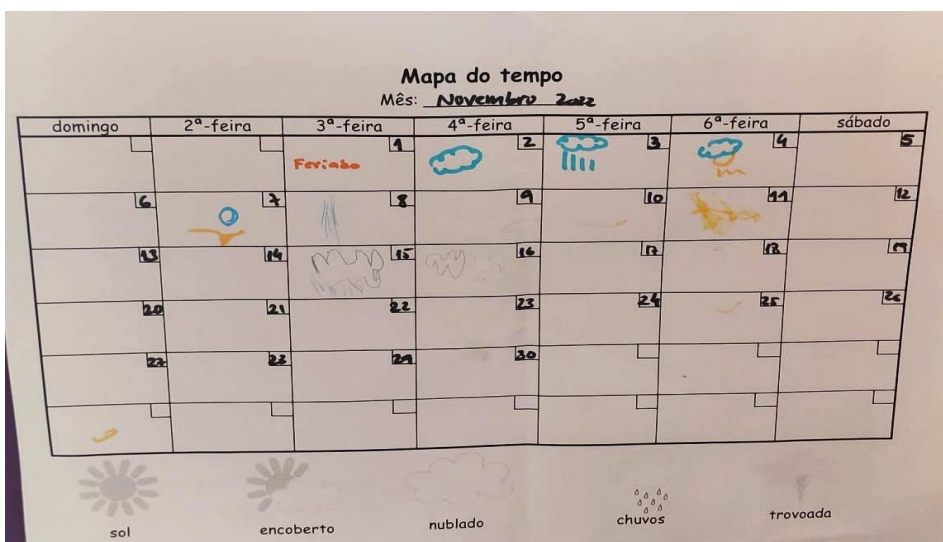 Mapa do tempo
Mês: Novembro 2022
domingo 2ª-feira 3ª-feira 4ª-feira 5ª-feira 6ª-feira sábado
1 2 3 4 5
Feriado
6 7 8 9 10 11 12
13 14 15 16 17 18 19
20 21 22 23 24 25 26
27 28 29 30
sol encoberto nublado chuvos trovoada